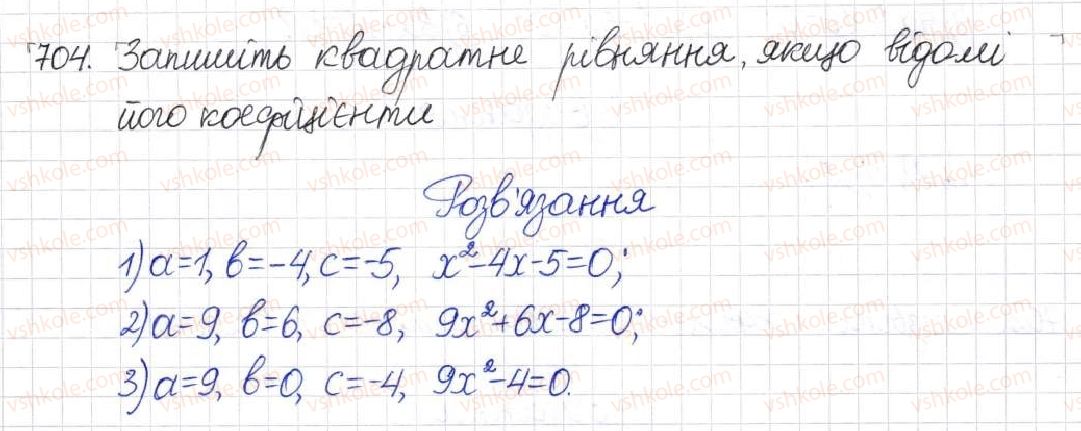 704. Запишіть квадратне рівняння, якщо відомі
його коефіцієнти
Розв'язання
1) a=1, b=-4, c=-5, x²-4x-5=0;
2) a=9, b=6, c=-8, 9x²+6x-8=0;
3) a=9, b=0, c=-4, 9x²-4=0.
vshkole.com